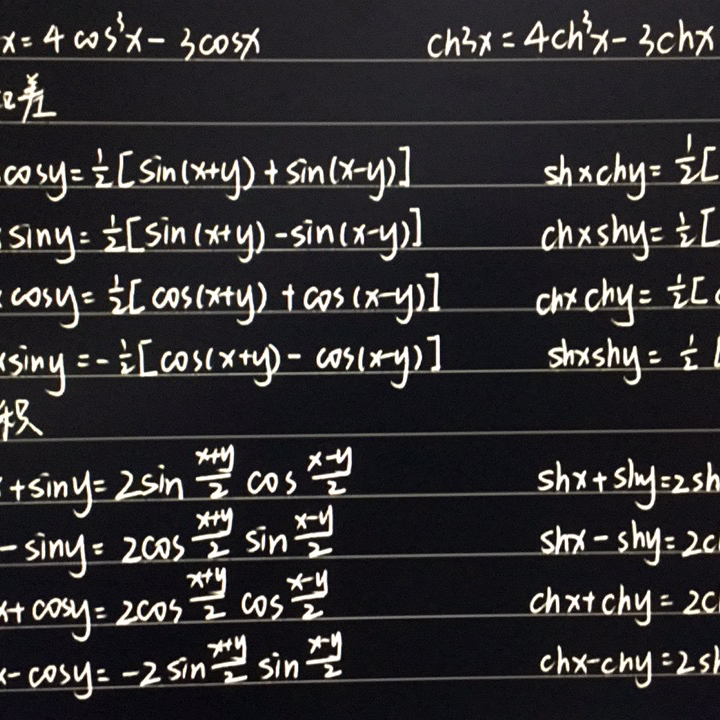 x = 4 cos³x - 3cosx ch3x = 4ch³x - 3chx
差
cosy = ½[sin(x+y) + sin(x-y)] shxchy = ½[
siny = ½[sin(x+y) - sin(x-y)] chxshy = ½[
cosy = ½[cos(x+y) + cos(x-y)] chxchy = ½[c
xsiny = -½[cos(x+y) - cos(x-y)] shxshy = ½[
积
+ siny = 2sin (x+y)/2 cos (x-y)/2 shx + shy = 2sh
- siny = 2cos (x+y)/2 sin (x-y)/2 shx - shy = 2c
x + cosy = 2cos (x+y)/2 cos (x-y)/2 chx + chy = 2c
x - cosy = -2sin (x+y)/2 sin (x-y)/2 chx - chy = 2sh